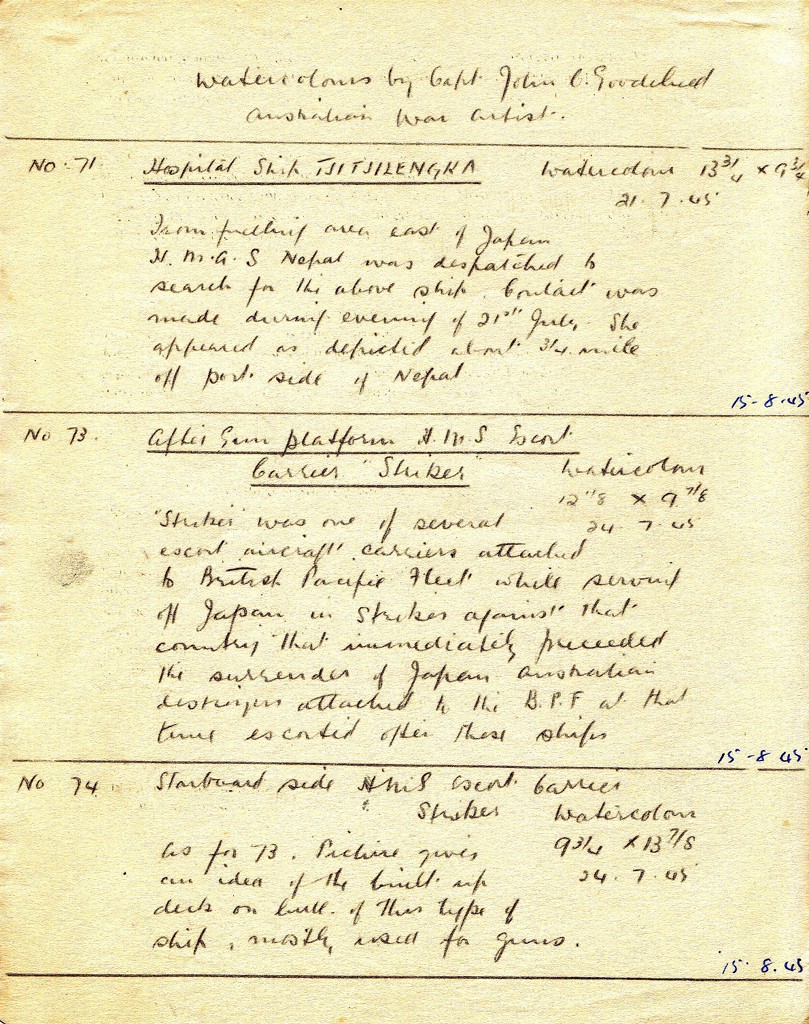 Watercolours by Capt John C. Goodchild
Australian War Artist.
No. 71 Hospital Ship TJITJILENGKA Watercolour 13 3/4 x 9 3/4
21. 7. 45
From fuelling area east of Japan
H.M.A.S Nepal was despatched to
search for the above ship. Contact was
made during evening of 21st July. She
appeared as depicted about 3/4 mile
off port side of Nepal
15-8.45
No 73. After Gun platform H.M.S Escort
Carrier "Striker" Watercolour
x 9 7/8
"Striker" was one of several 24. 7. 45
escort aircraft carriers attached
to British Pacific Fleet while serving
off Japan in Strikes against that
country that immediately preceeded
the surrender of Japan Australian
destroyers attached to the B.P.F at that
time escorted often these ships
15-8 45
No 74. Starboard side HMS Escort Carrier
Striker Watercolour
As for 73. Picture gives 9 3/4 x 13 7/8
an idea of the built up 24. 7. 45
deck on hull of this type of
ship, mostly used for guns.
15. 8. 45